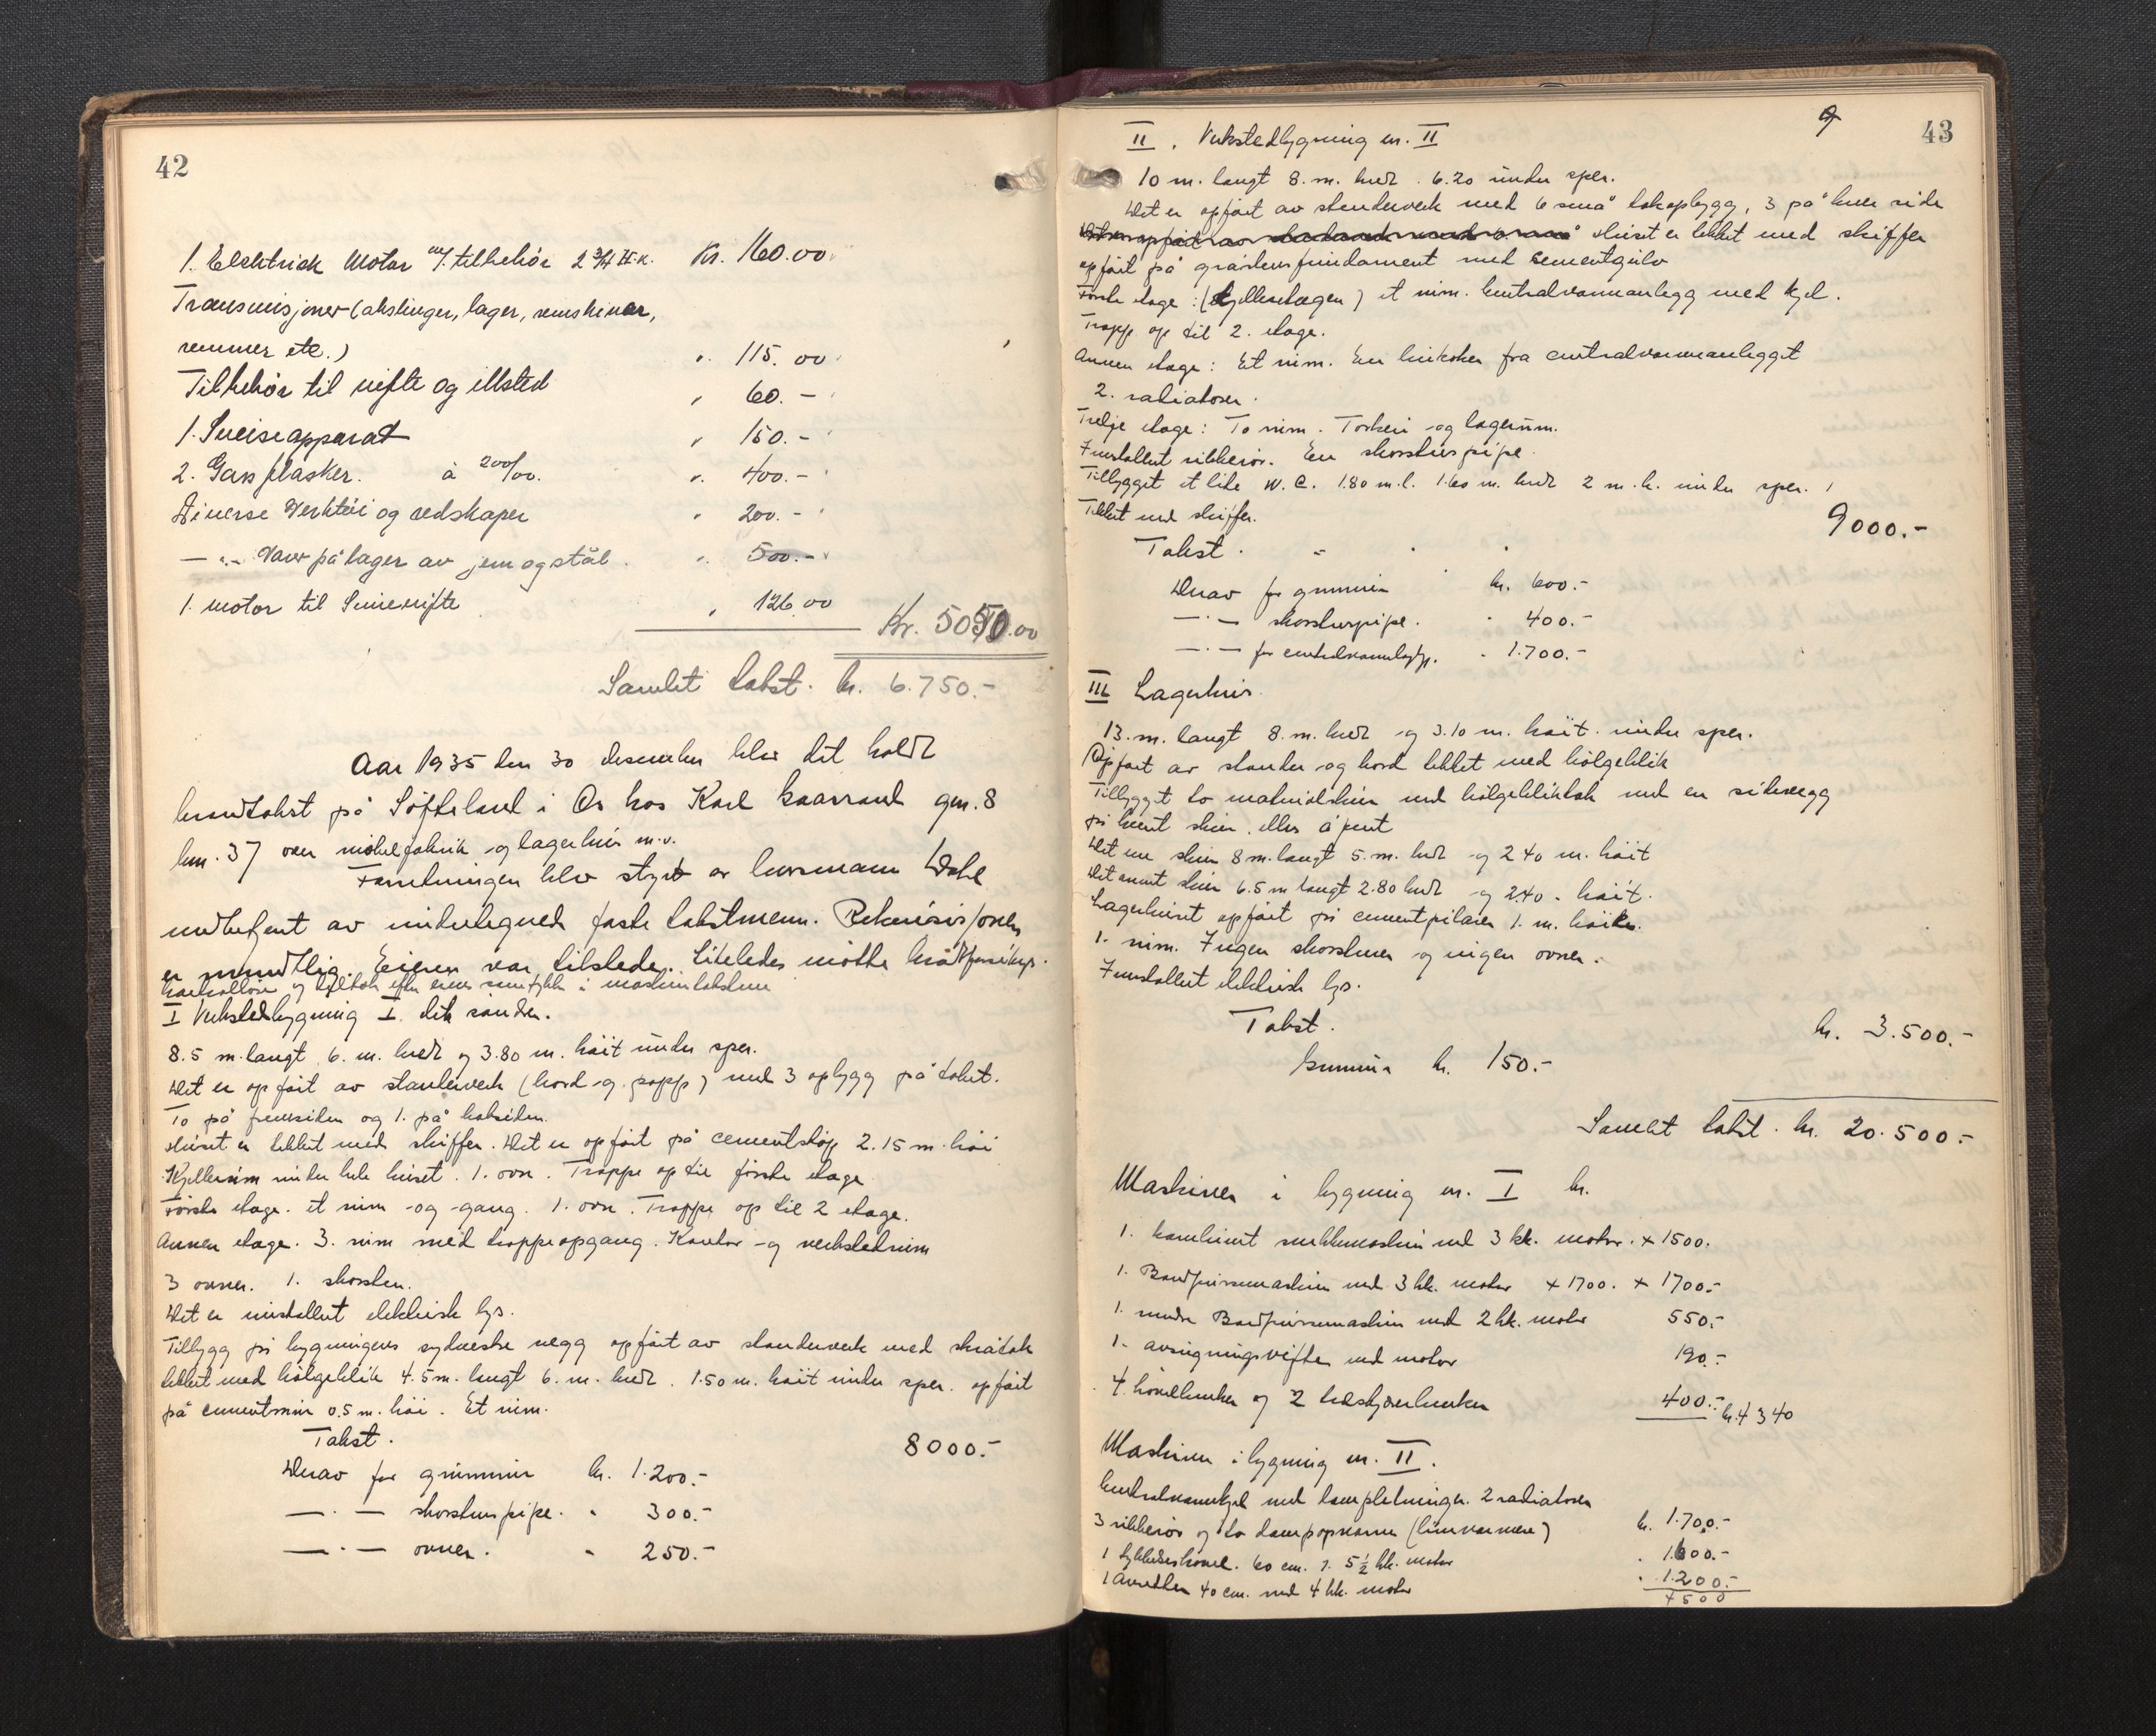 42
1. Elektrisk Motor m/. tilbehör 2 3/4 H.K. Kr. 160.00
Transmisjoner (akslinger, lager, remskiver,
remmer etc.) " 115.00
Tilbehör til vifte og illsted " 60.-
1. Sveiseapparat " 150.-
2. Gassflasker. à 200/00. " 400.-
Diverse Verktöi og redskaper " 200.-
— " - Varer på lager av jern og stål. " 500.-
1. motor til Smievifte " 126.00
Kr. 5050.00
Samlet takst. kr. 6.750.-
Aar 1935 den 30 desember blev det holdt
branntakst på Söfteland i Os hos Karl gnr. 8
bnr. 37 over möbelfabrik og lagerhus m.v.
Forretningen blev styrt av lensmann Dahl
medbetjent av undertegnede faste takstmenn. Rekvisisjonen
er mundtlig. Eieren var tilstede. Likeledes mötte
kontrollör og deltok efter eiers samtykke i maskintaksten
I Verkstedbygning I. ditto sönden.
8.5 m. langt 6. m. bredt og 3.80 m. höit under sper.
Det er opfört av stenderverk (bord og papp) med 3 oplygg på taket.
To på fremsiden og 1. på baksiden.
Huset er tekket med skiffer. Det er opfört på cementstöp 2.15 m. höi
Kjellerrum under hele huset. 1. ovn. Trappe op til förste etage
Förste etage. et rum og gang. 1. ovn. Trappe op til 2 etage.
Annen etage. 3. rum med trappeopgang. Kontor og verkstedrum
3 ovner. 1. skorsten.
Det er installert elektrisk lys.
Tillygg på bygningens sydvestre vegg opfört av stenderverk med skråtak
tekket med bölgeblik 4.5 m. langt 6. m. bredt. 1.50 m. höit under sper. opfört
på cementmur 0.5 m. höi. Et rum.
Takst. 8000.-
Derav for grunnmur kr. 1.200.-
— " — skorstenspipe. " 300.-
— " — ovner. " 250.-
43
II. Verkstedbygning nr. II
10 m. langt 8. m. bredt. 6.20 under sper.
Det er opfört av stenderverk med 6 små takoplygg, 3 på hver side
Huset er tekket med skiffer
opfört på gråstensfundament med cementgulv
Förste etage: (Kjelleretagen) et rum. Centralvarmanlegg med kjel.
Trapp op til 2. etage.
Annen etage: Et rum. En limkoker fra centralvarmeanlegget
2. radiatorer.
Tredje etage: To rum. Törkeri og lagerrum.
Installert ribberör. En skorstenspipe.
Tillygget et lite W.C. 1.80 m. l. 1.60 m. bredt 2 m. h. under sper.
Tekket med skiffer.
Takst. 9000.-
Derav for grunnmur kr. 600.-
— " — skorstenspipe. " 400.-
— " — for centralvarmeanlegg. " 1.700.-
III Lagerhus.
13. m. langt 8. m. bredt og 3.10 m. höit under sper.
Opfört av stender og bord tekket med bölgeblik
Tillygget to materialskur med bölgebliktak med en sidevegg
på hvert skur. ellers åpent
Det ene skur 8 m. langt 5. m. bredt og 2.40 m. höit
Det annet skur 6.5 m langt 2.80 bredt og 2.40. höit.
Lagerhuset opfört på cementpilarer 1. m. höie.
1. rum. Ingen skorstener og ingen ovner.
Installert elektrisk lys.
Takst. kr. 3.500.-
Grunnmur kr. 150.-
Samlet takst. kr. 20.500.-
Maskiner i bygning nr. I kr.
1. kombinert snekkermaskin med 3 hk. motor. + 1500.
1. Båndpussemaskin med 3 hk. motor + 1700. + 1700.-
1. mindre Båndpussemaskin med 2 hk. motor 550.-
1. avsugningsvifte med motor 190.-
4. hövelbenker og 2 treskjærerbenker 400.- kr. 4340
Maskiner i bygning nr. II.
Centralvarmekjel med rampledninger. 2 radiatorer
3 ribberör og to dampopvarmere (limvarmere) kr. 1.700.-
1 tykkelseshövel. 60 cm. m. 5 1/2 hk. motor " 1.600.-
1 Avretter 40 cm. med 4 hk. motor " 1.200.-
4500